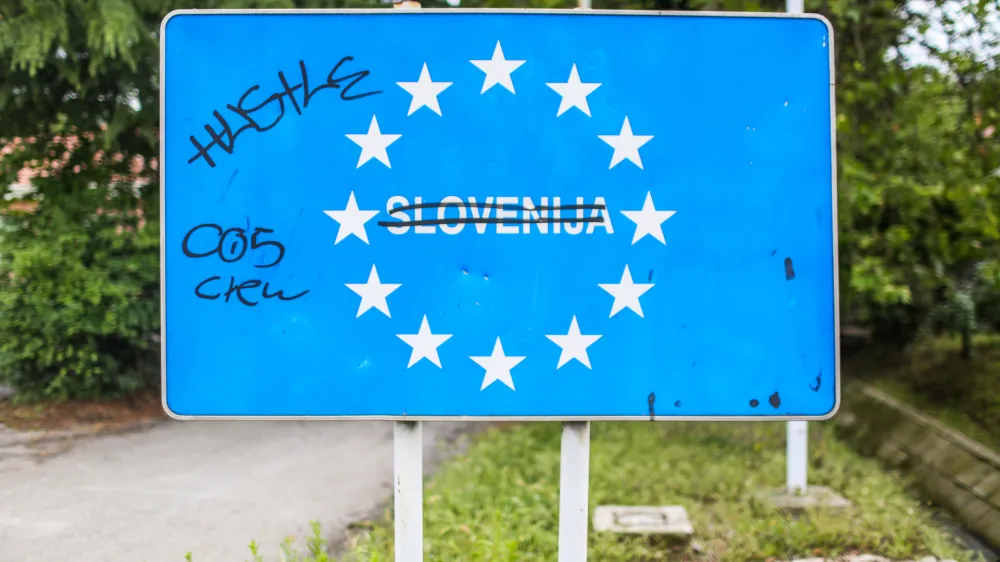 HUSTLE
SLOVENIJA
CO5
crew